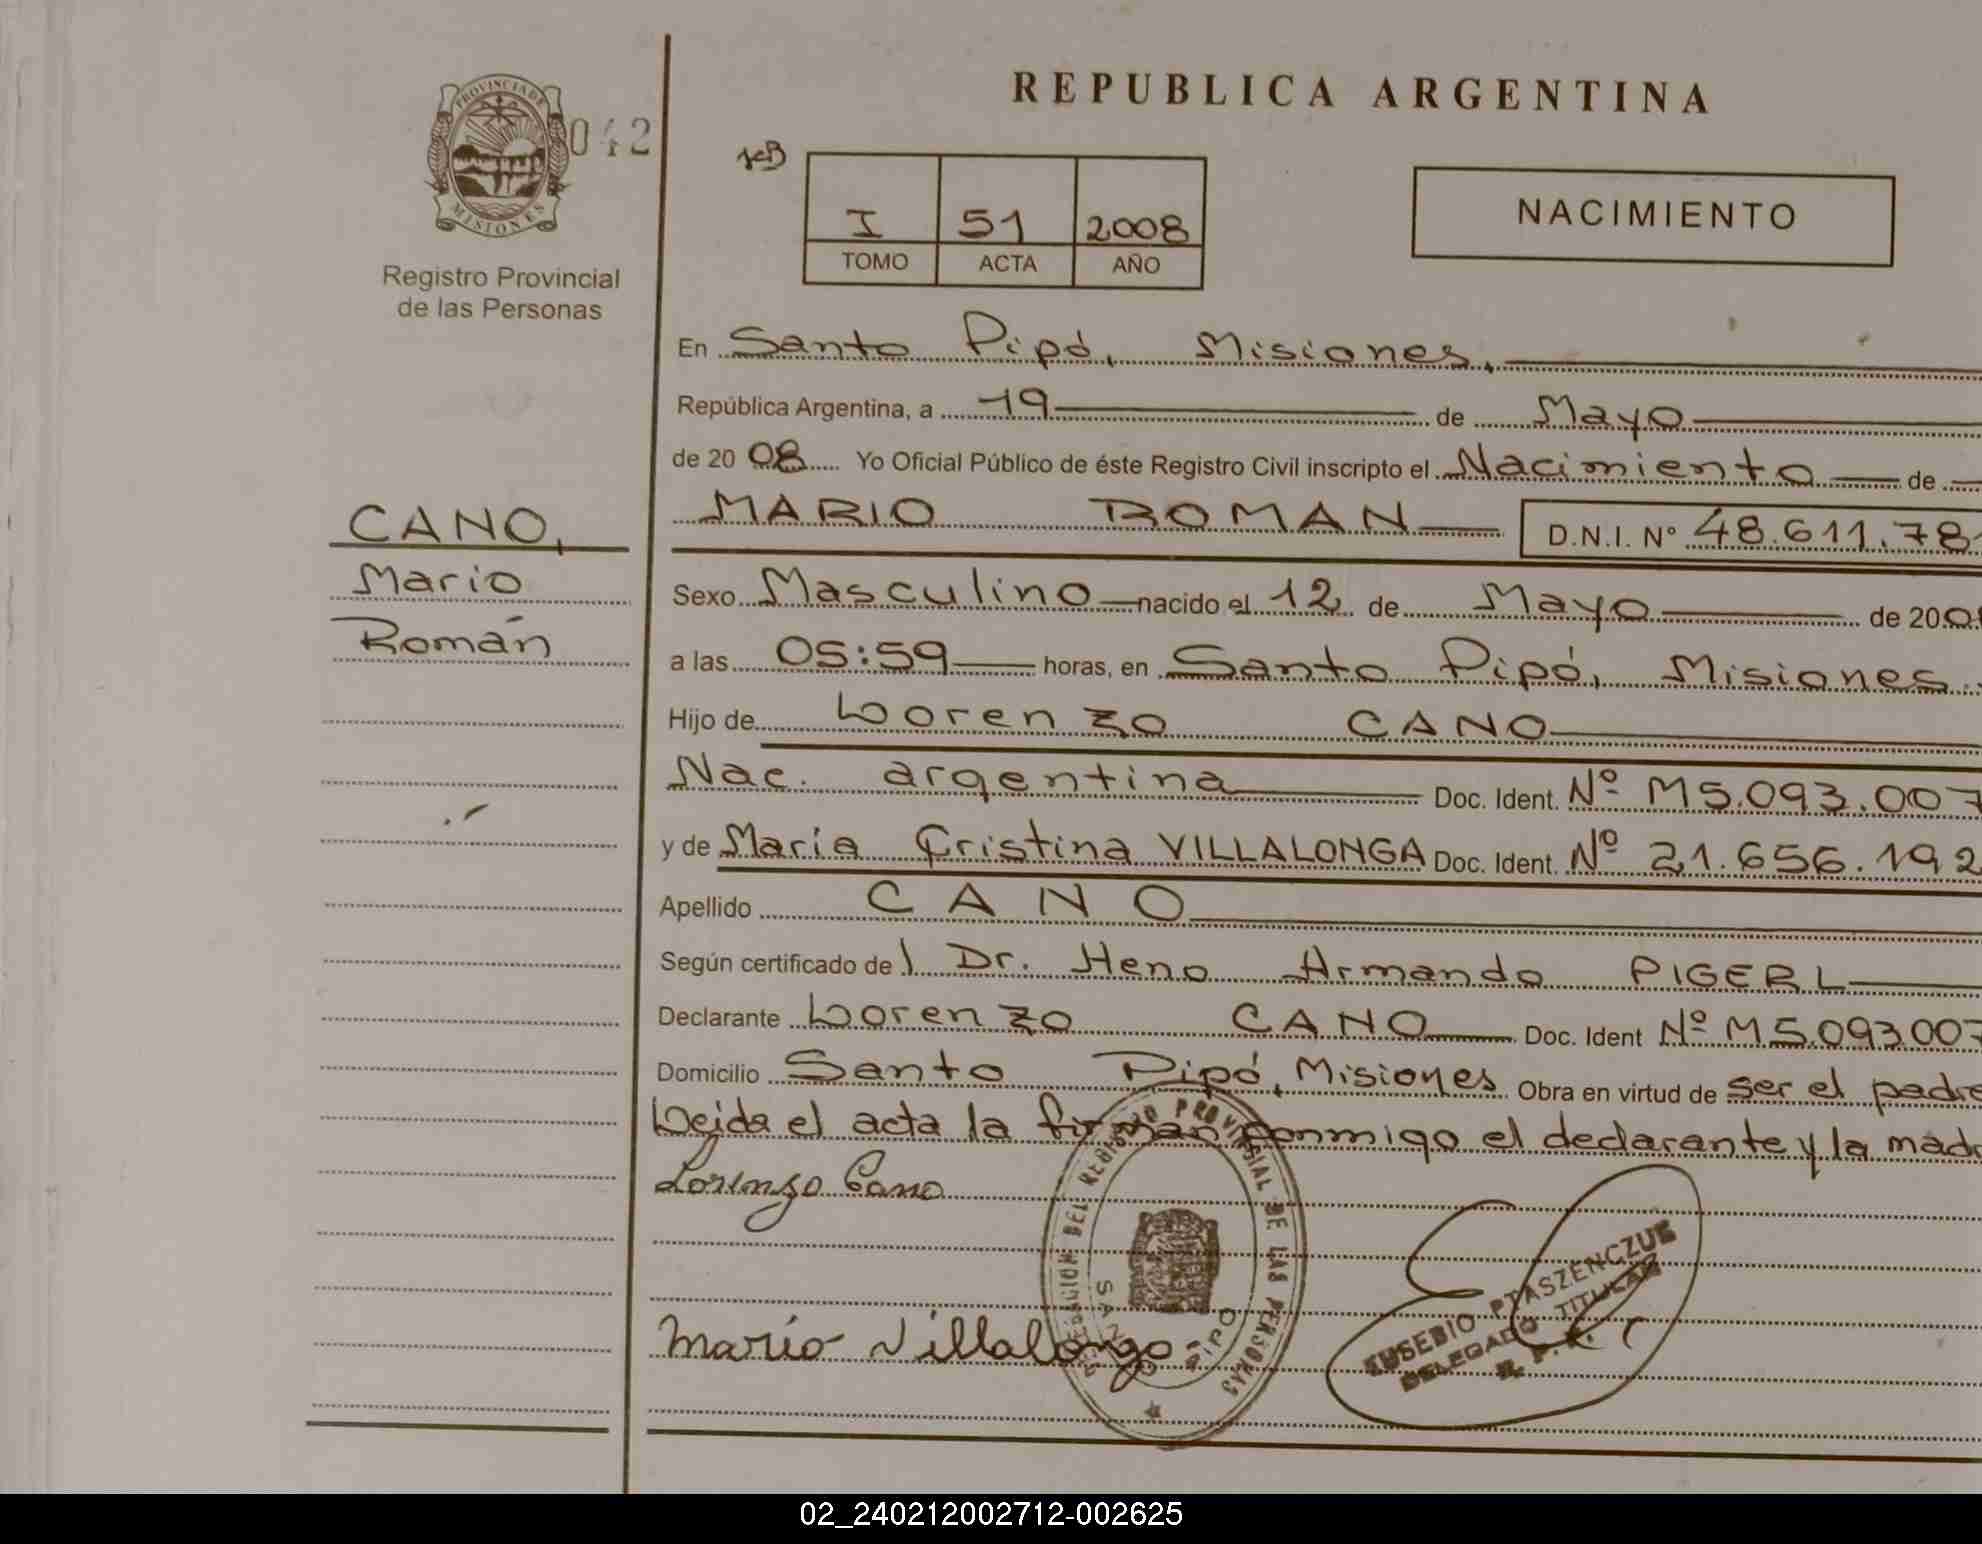 PROVINCIA DE
MISIONES
042
Registro Provincial
de las Personas
REPUBLICA ARGENTINA
I 51 2008
TOMO ACTA AÑO
NACIMIENTO
En Santo Pipó, Misiones,
República Argentina, a 19 de Mayo
de 2008 Yo Oficial Público de éste Registro Civil inscripto el Nacimiento de
MARIO ROMAN D.N.I. Nº 48.611.78
CANO,
Mario
Román
Sexo Masculino nacido el 12 de Mayo de 200
a las 05:59 horas, en Santo Pipó, Misiones
Hijo de Lorenzo CANO
Nac. argentina Doc. Ident. Nº M5.093.007
y de María Cristina VILLALONGA Doc. Ident. Nº 21.656.192
Apellido CANO
Según certificado de l Dr. Heno Armando PIGERL
Declarante Lorenzo CANO Doc. Ident Nº M5.093007
Domicilio Santo Pipó, Misiones Obra en virtud de ser el padre
Leida el acta la firman conmigo el declarante y la mad
Lorenzo Cano
DELEGACION DEL REGISTRO PROVINCIAL DE LAS PERSONAS
SANTO PIPO
María Villalonga
EUSEBIO PTASZENCZUK
DELEGADO TITULAR
R. P. P.
02_240212002712-002625